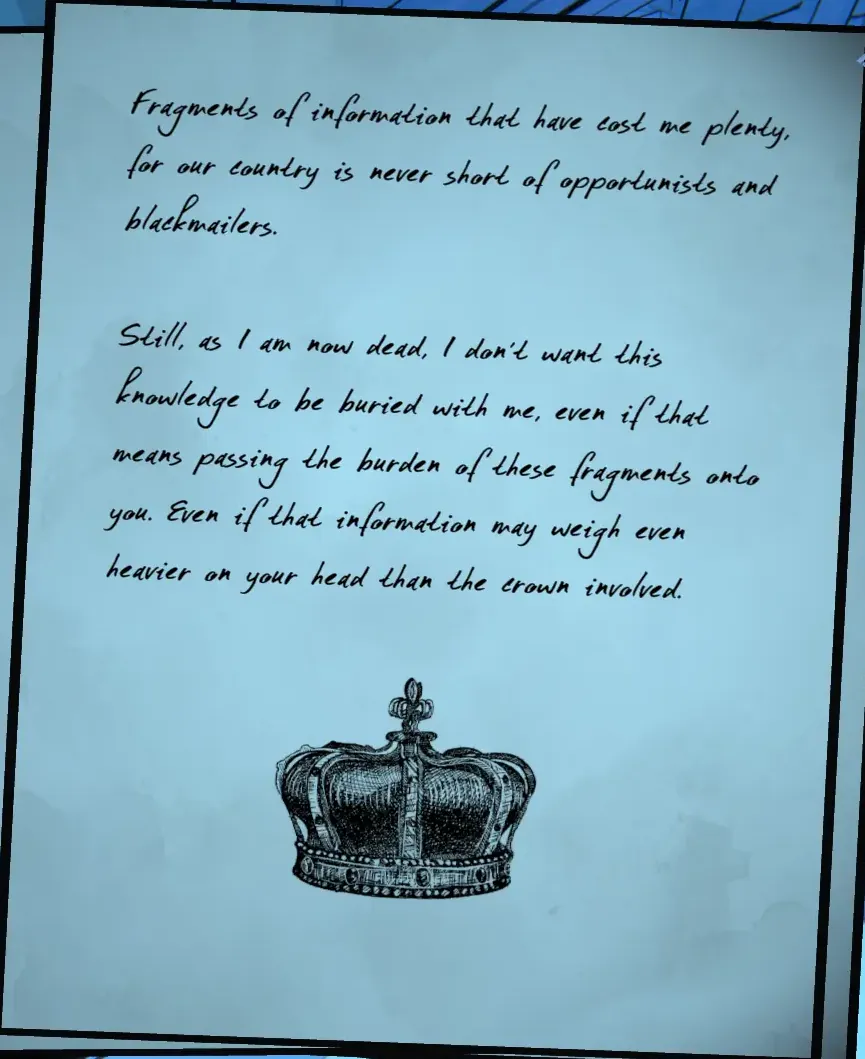 Fragments of information that have cost me plenty,
for our country is never short of opportunists and
blackmailers.
Still, as I am now dead, I don't want this
knowledge to be buried with me, even if that
means passing the burden of these fragments onto
you. Even if that information may weigh even
heavier on your head than the crown involved.